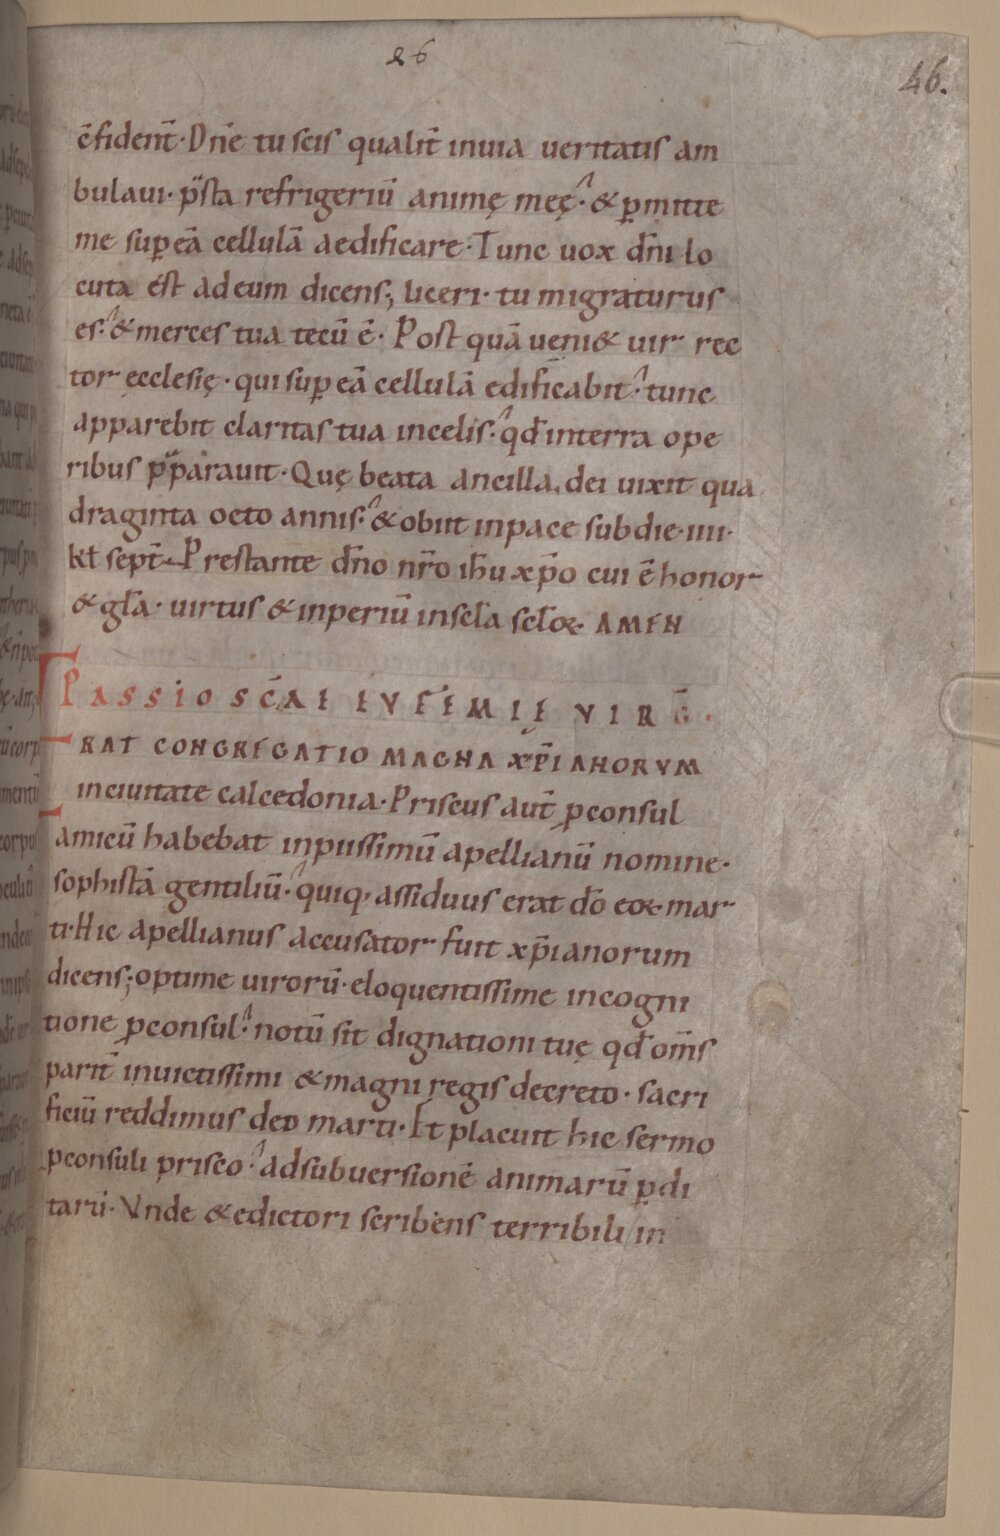 26
46.
c̄fident̄· Dñe tu scis qualit̄ inuia ueritatis am
bulaui· p̈sta refrigeriū animę meę· & ꝑmitte
me suꝑ eā cellulā aedificare· Tunc uox dn̄i lo
cuta est ad eum dicens; uceri· tu migraturus
es· & merces tua tecū ē· Post quā ueni& uir rec
tor ęcclesię· qui suꝑ eā cellulā edificabit· tunc
apparebit claritas tua incelis· qđ interra ope
ribus p̈parauit· Quę beata ancilla dei uixit qua
draginta octo annis· & obiit inpace subdie·iiii·
kł sept̄· Prestante dn̄o nr̄o ih̄u xp̄o cui ē honor
& gła· uirtus & inperiū inscła scłoꝝ· AMEN
PASSIO SC̄AE EVFEMIE VIRḠ·
ERAT CONGREGATIO MAGNA XP̄IANORVM
inciuitate calcedonia· Priscus aut̄ ꝓconsul
amicū habebat inpiissimū apellianū nomine·
sophistā gentiliū· quiq; assiduus erat dō eoꝝ mar
ti· Hic apellianus accusator fuit xp̄ianorum
dicens; optime uirorū· eloquentissime incogni
tione ꝓconsul· notū sit dignationi tuę qđ om̄s
parit̄ inuictissimi & magni regis decreto· sacri
ficiū reddimus deo marti· Et placuit hic sermo
ꝓconsuli prisco· adsubuersionē animarū ꝑdi
tarū· Vnde & edictori scribens terribili in